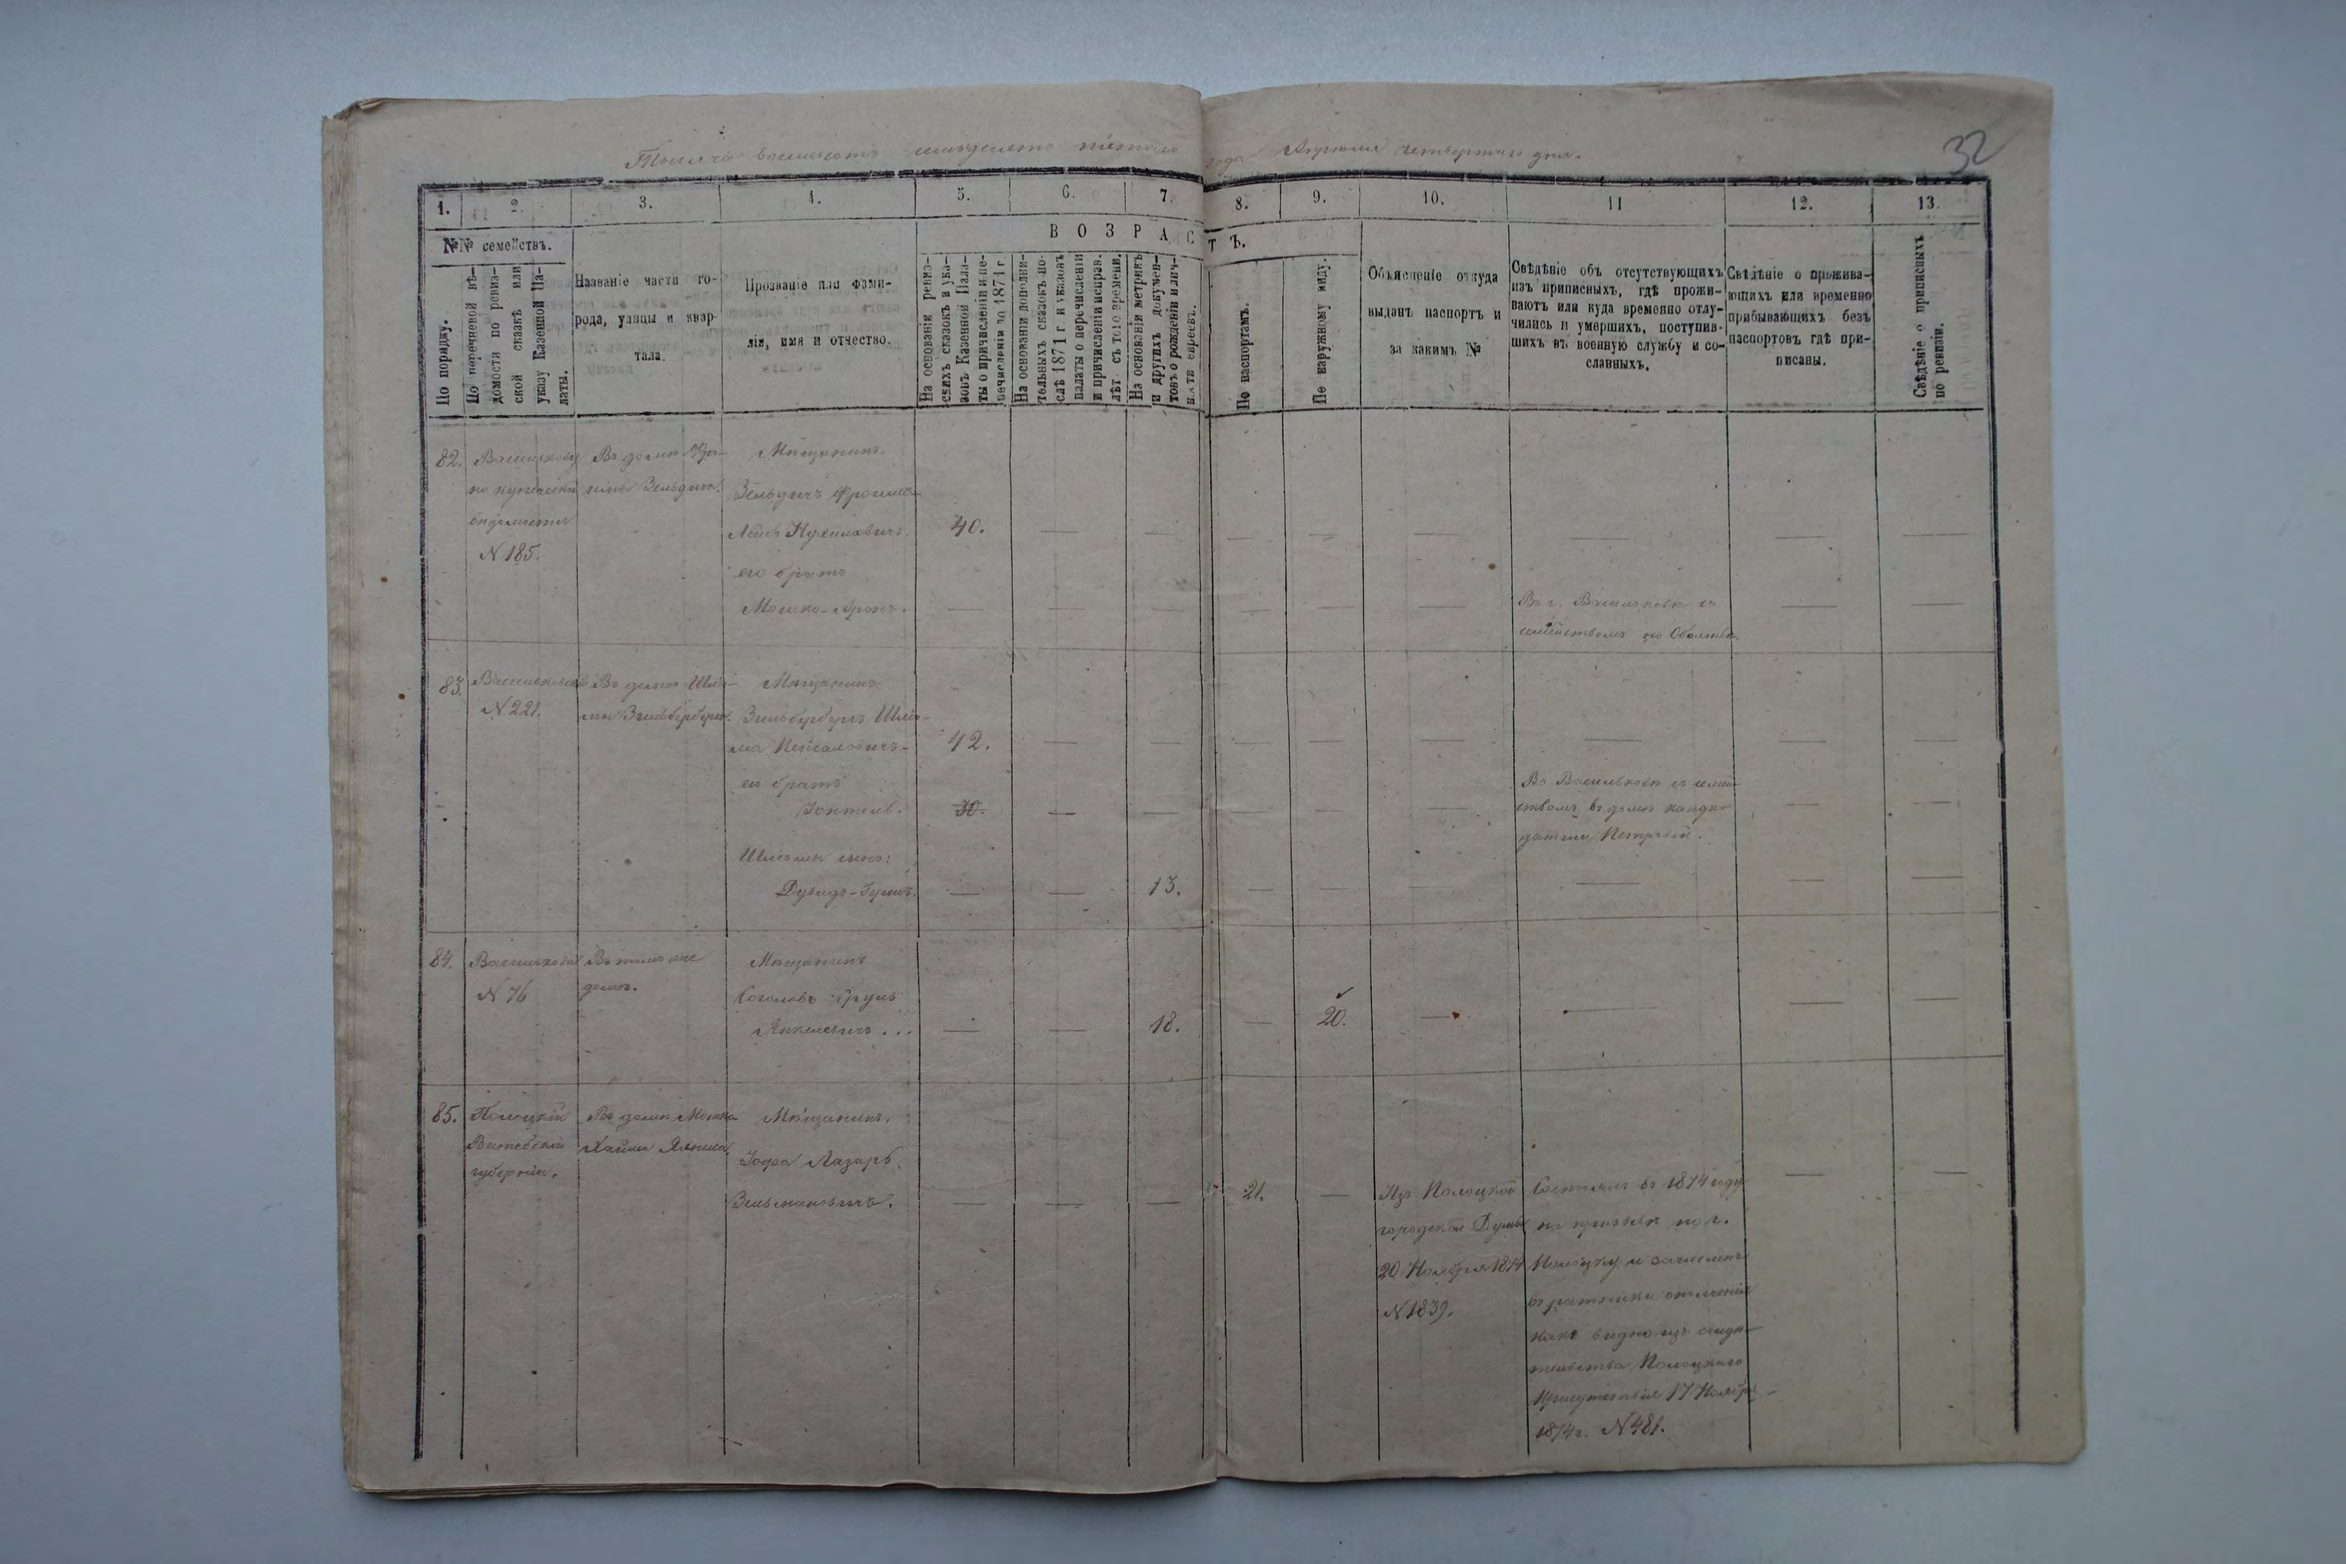 Тысяча восемьсотъ семьдесятъ пятого года Апрѣля четвертаго дня.
32
1. 2. 3. 4. 5. 6. 7. 8. 9. 10. 11 12. 13.
№№ семействъ.
ВОЗРАСТЪ.
По порядку.
По перечневой вѣ-
домости по ревиз-
ской сказкѣ или
указу Казенной Па-
латы.
Названіе части го-
рода, улицы и квар-
тала.
Прозваніе или фами-
лія, имя и отчество.
На основаніи ревиз-
скихъ сказокъ и ука-
зовъ Казенной Пала-
ты о причисленіи и пе-
речисленіи до 1871 г.
На основаніи дополни-
тельныхъ сказокъ по-
слѣ 1871 г. и указовъ
палаты о перечисленіи
и причисленіи исправ.
лѣт съ того времени.
На основаніи метрикъ
и другихъ докумен-
товъ о рожденіи и лич-
ности евреевъ.
По паспортамъ.
По наружному виду.
Объясненіе откуда
выданъ паспортъ и
за какимъ №
Свѣдѣніе объ отсутствующихъ
изъ приписныхъ, гдѣ прожи-
ваютъ или куда временно отлу-
чились и умершихъ, поступив-
шихъ въ военную службу и со-
сланныхъ.
Свѣдѣніе о прожива-
ющихъ или временно
прибывающихъ безъ
паспортовъ гдѣ при-
писаны.
Свѣдѣніе о приписныхъ
по ревизіи.
82.
Василькову
по купеческой
вѣдомости
N 185.
Въ домѣ
Зельдича.
Мѣщанинъ
Зельдичъ Фроим-
Лейб
его братъ
Мошко-Аронъ.
40.
Въ г. Васильковѣ съ
семействомъ по
83.
Васильковскій
N 221.
Въ домѣ Шлё-
мы Зильберберга.
Мѣщанинъ
Зильбербергъ Шлё-
ма Пейсаховичъ-
42.
его братъ
30.
Въ Васильковѣ съ семей-
ствомъ въ домѣ
Петровой.
Шлёмы сынъ:
13.
84.
Василькова
N 76
Въ томъ же
домѣ.
Мѣщанинъ
Соголовъ Сруль
Янкелевичъ...
18.
20.
85.
Полоцкій
Витебской
губерніи.
Въ домѣ Мошка
Хаима
Мѣщанинъ.
Іофа Лазарь
Зельмановичъ.
21.
Изъ Полоцкой
городской Думы
20 Ноября 1874
N 1839.
Состоялъ въ 1874 году
на призывѣ по г.
Полоцку и зачисленъ
въ ратники ополченія
какъ видно изъ свидѣ-
тельства Полоцкаго
Присутствія 17 Ноября
1874 г. N 481.